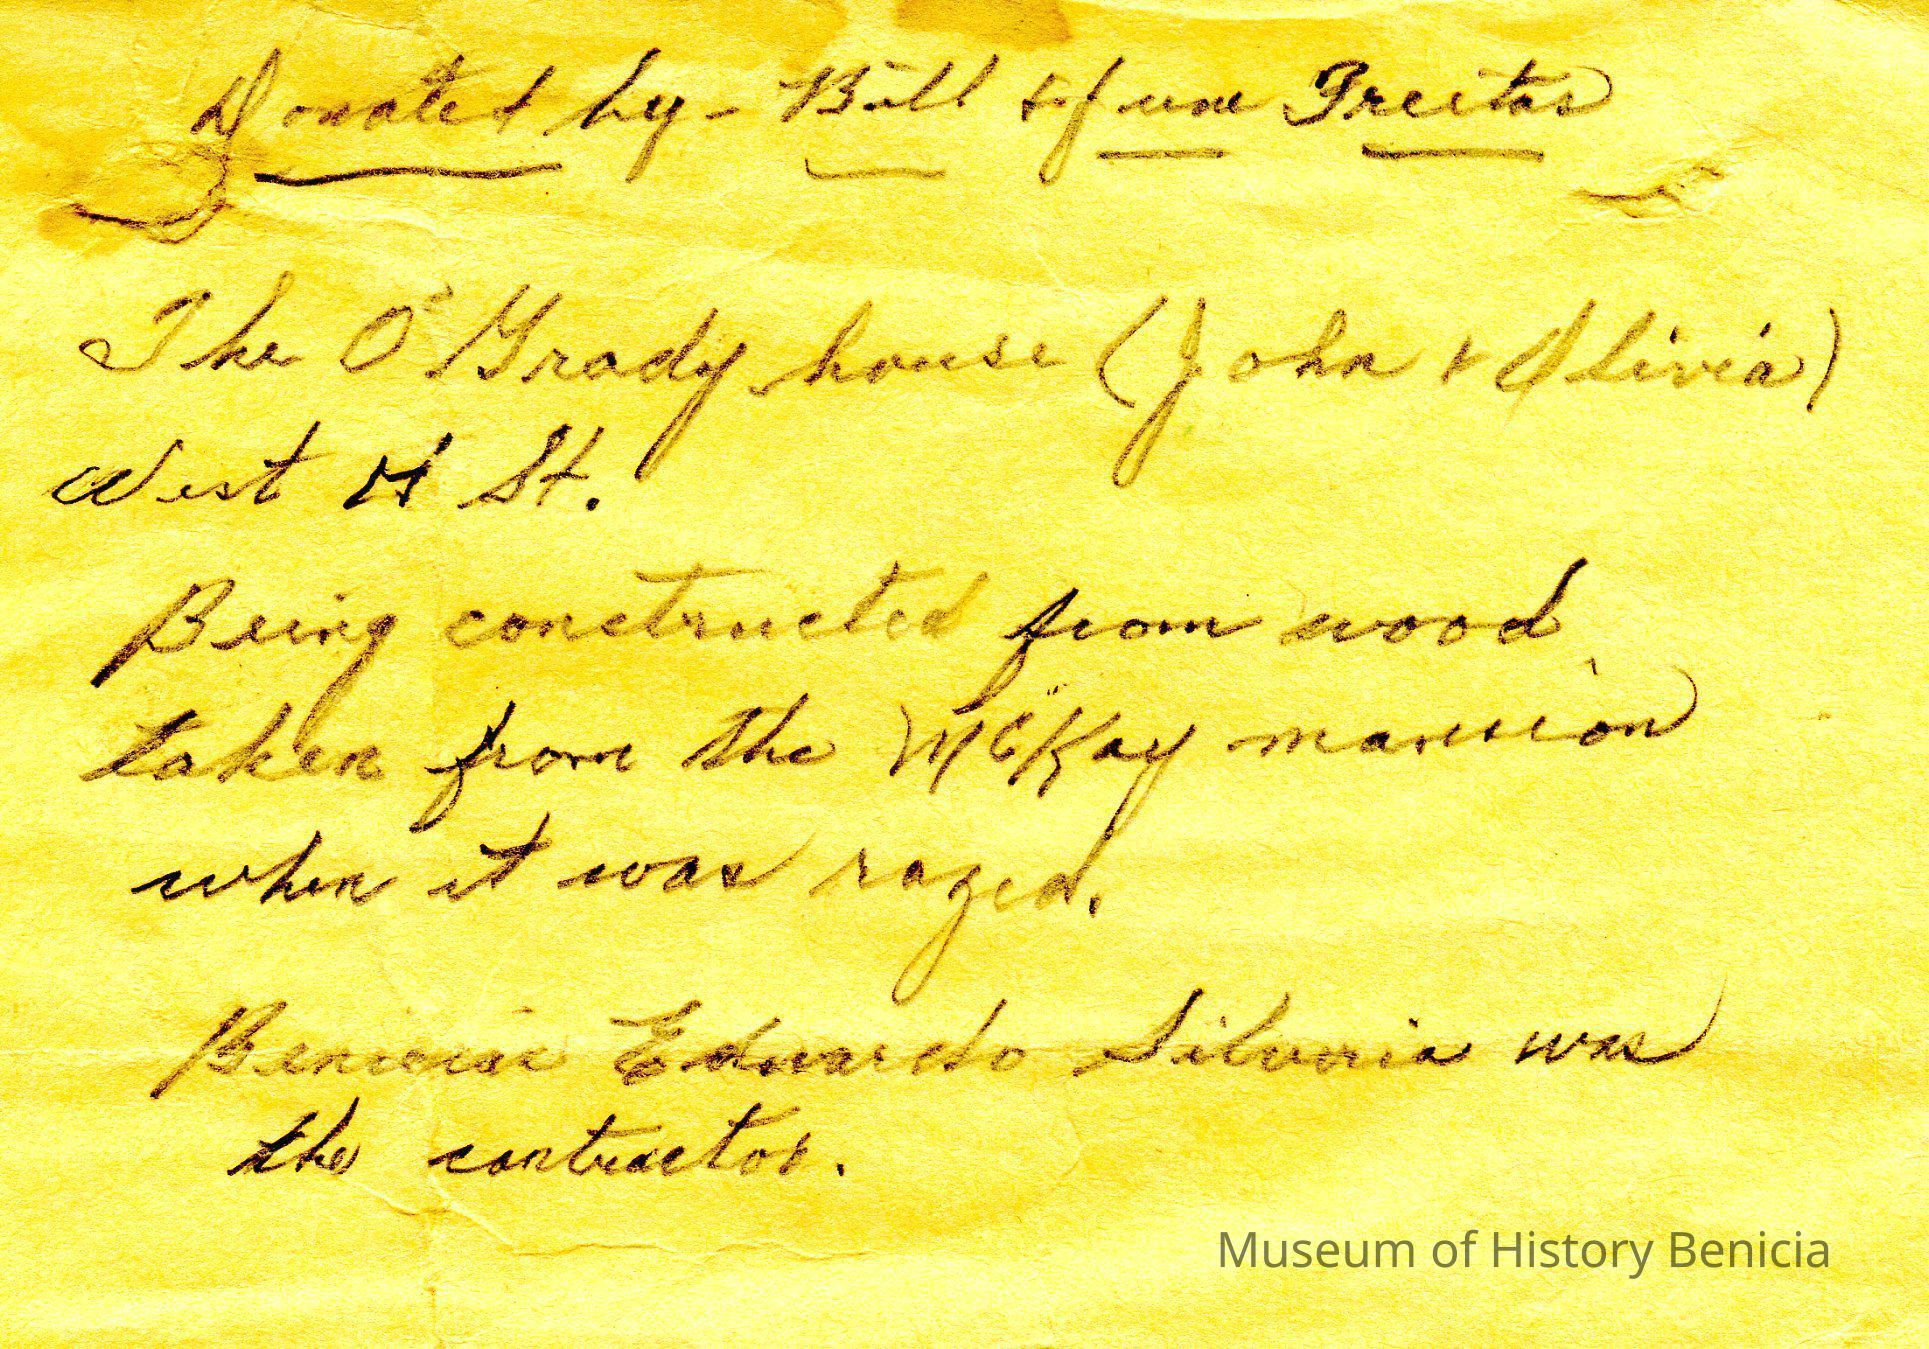 Donated by - Bill & June Freitas
The O'Grady house (John & Olivia)
West H St.
Being constructed from wood
taken from the McKay mansion
when it was razed.
Benician Edwardo Silveria was
the contractor.
Museum of History Benicia